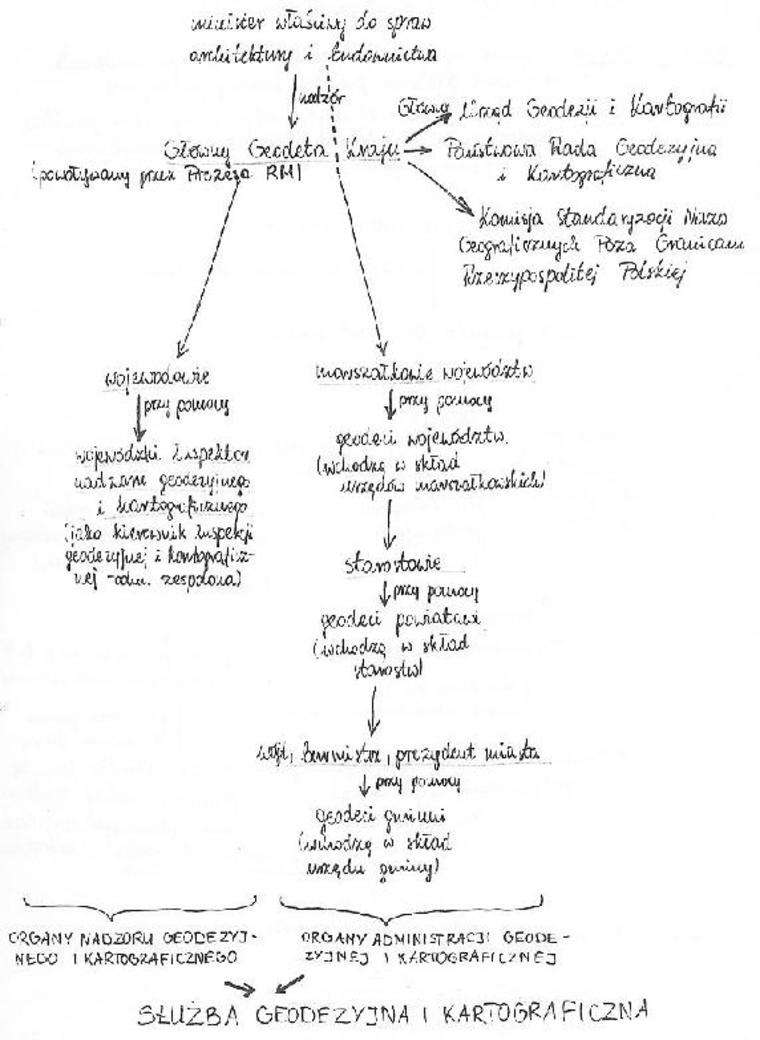 minister właściwy do spraw
architektury i budownictwa
nadzór
Główny Geodeta Kraju
(powoływany przez Prezesa RM)
Główny Urząd Geodezji i Kartografii
Państwowa Rada Geodezyjna
i Kartograficzna
Komisja Standaryzacji Nazw
Geograficznych Poza Granicami
Rzeczypospolitej Polskiej
wojewodowie
przy pomocy
wojewódzki Inspektor
nadzoru geodezyjnego
i kartograficznego
(jako kierownik Inspekcji
geodezyjnej i kartografisz-
nej - adm. zespolona)
marszałkowie województw
przy pomocy
geodeci województw
(wchodzą w skład
urzędów marszałkowskich)
starostowie
przy pomocy
geodeci powiatowi
(wchodzą w skład
starostw)
wójt, burmistrz, prezydent miasta
przy pomocy
geodeci gminni
(wchodzą w skład
urzędu gminy)
ORGANY NADZORU GEODEZYJ-
NEGO I KARTOGRAFICZNEGO
ORGANY ADMINISTRACJI GEODE-
ZYJNEJ I KARTOGRAFICZNEJ
SŁUŻBA GEODEZYJNA I KARTOGRAFICZNA